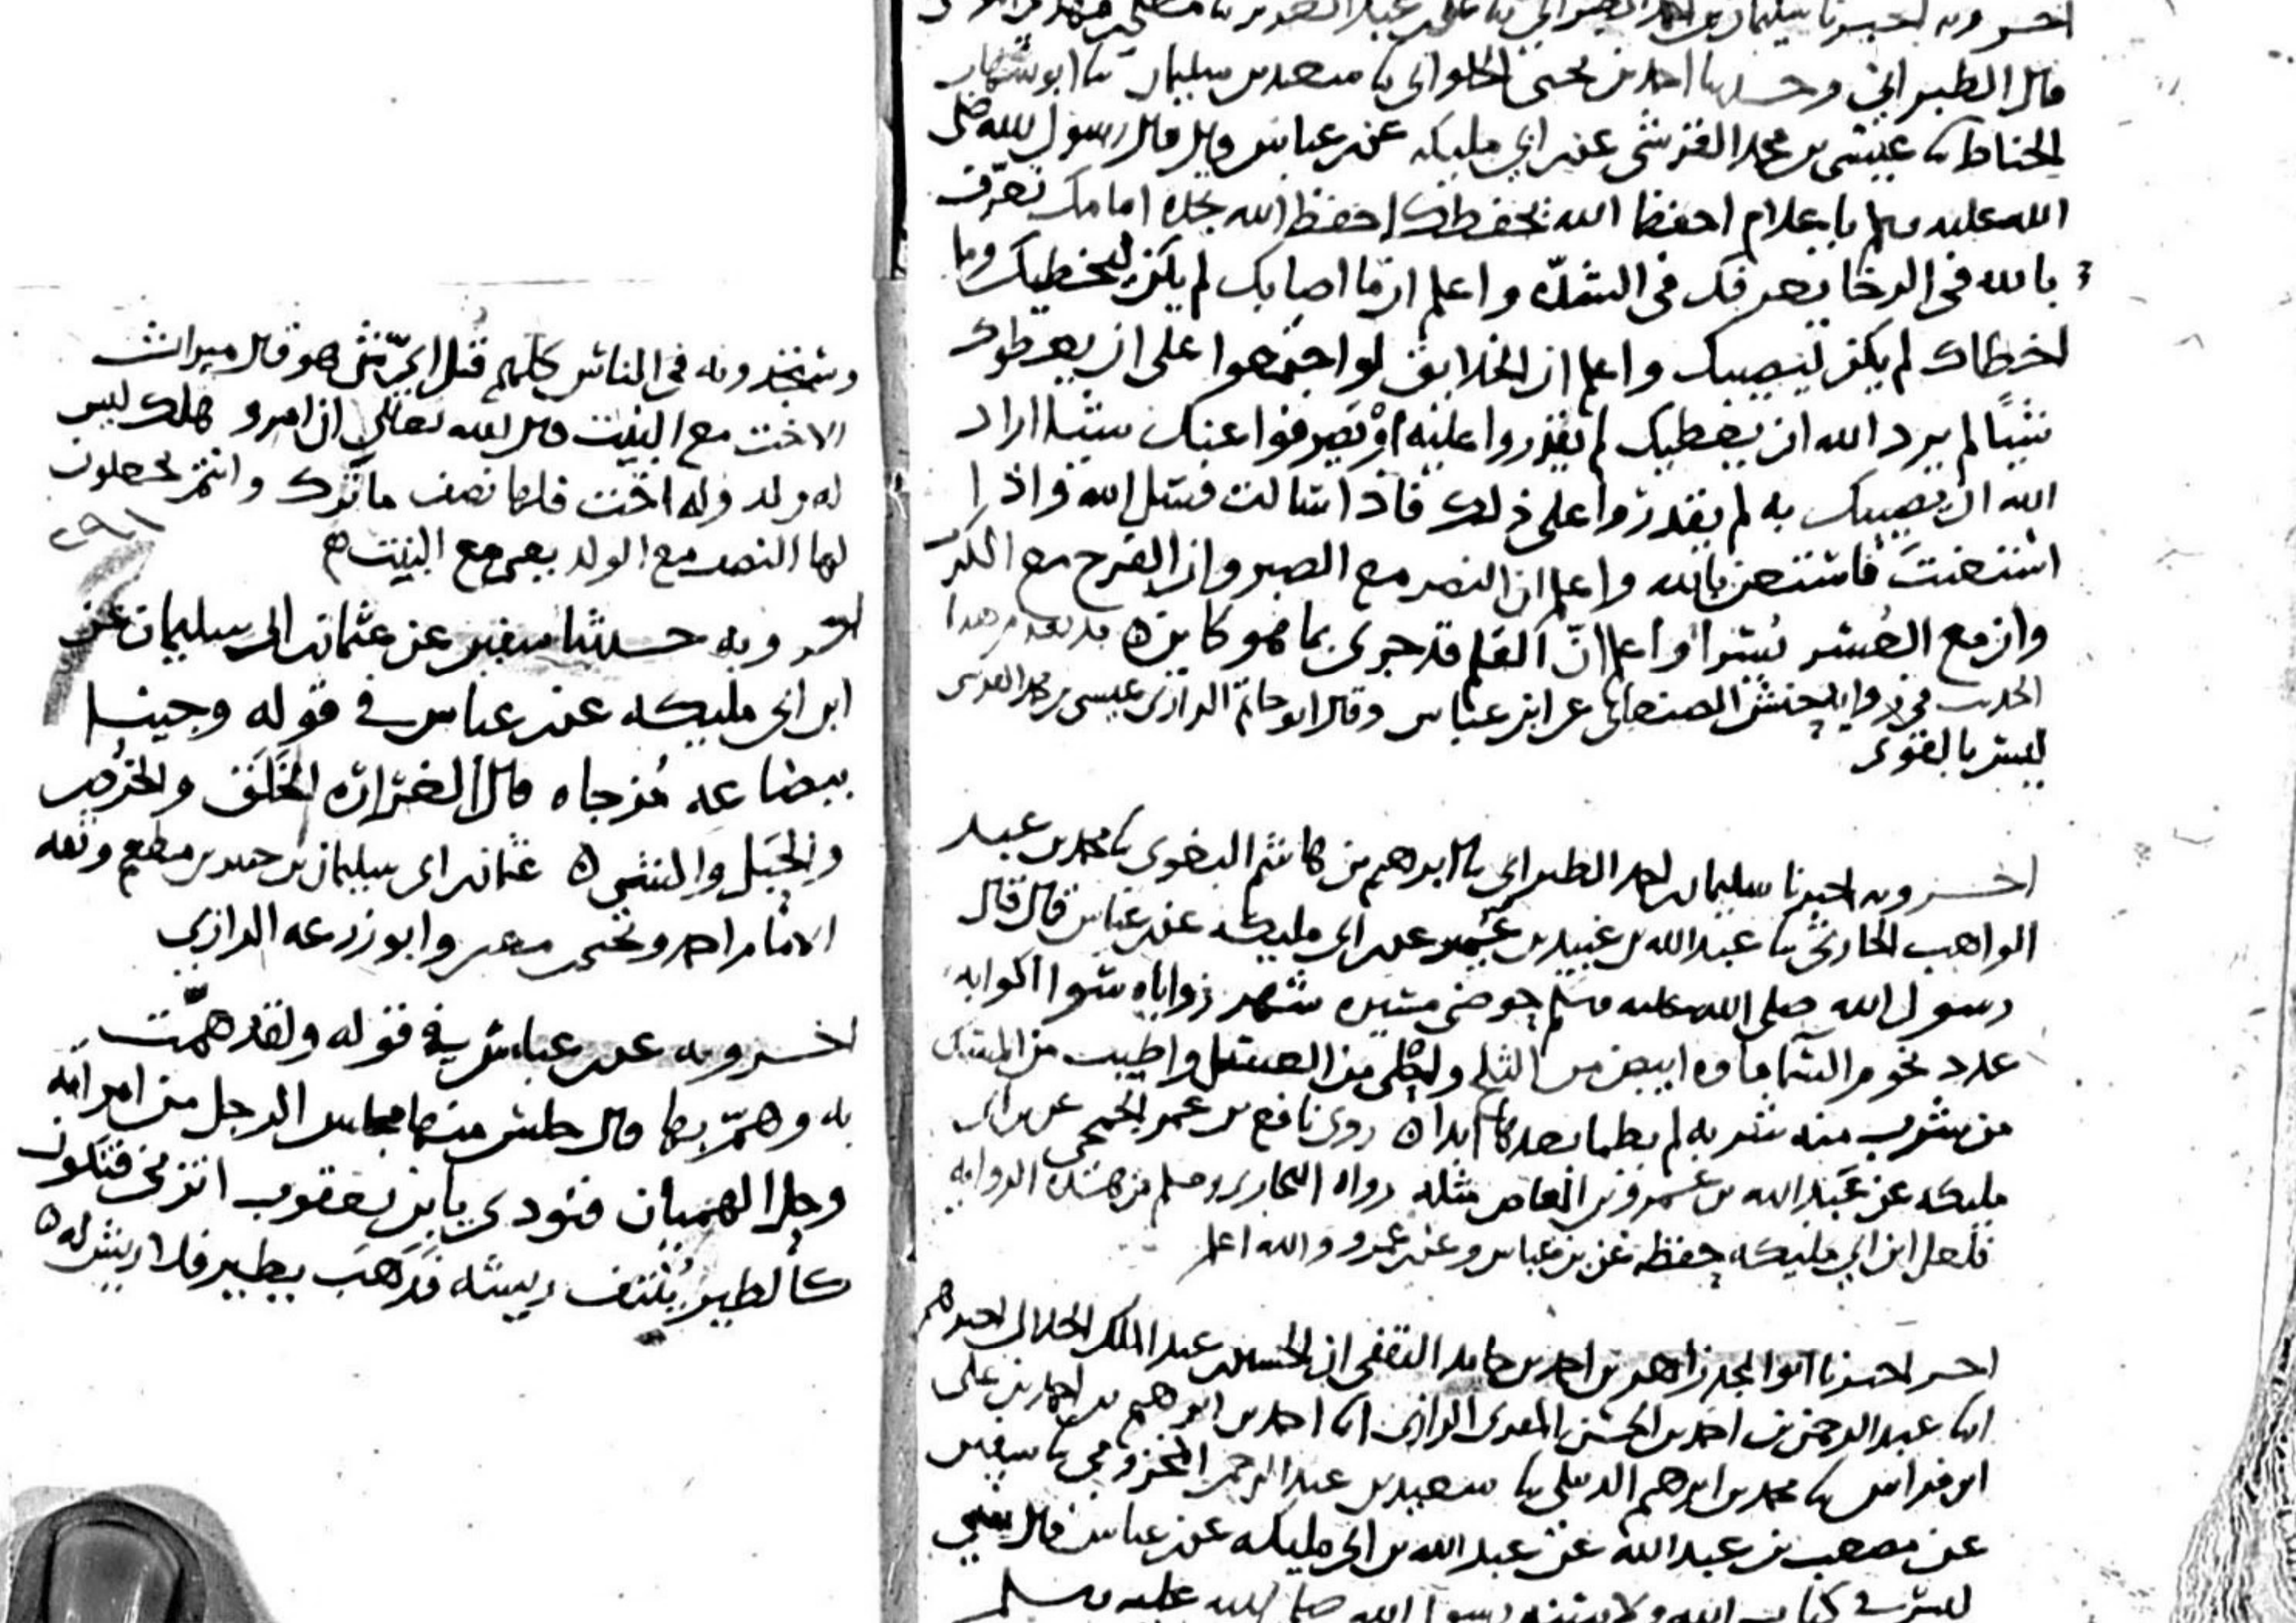 اخبرنا وبه اخبرنا سليمان بن احمد الطبراني علي بن عبد العزيز
قال الطبراني وحدثنا احمد بن يحيى الحلواني ثنا سعيد بن سليمان ثنا ابو شهاب
الحناط ثنا عيسى بن محمد القرشي عن ابن ابي مليكه عن بن عباس قال قال رسول الله صلى
الله عليه وسلم يا غلام احفظ الله يحفظك احفظ الله تجده امامك تعرف
بالله في الرخا يعرفك في الشدّه واعلم ان ما اصابك لم يكن ليخطيك وما
اخطاك لم يكن ليصيبك واعلم ان الخلايق لو اجتمعوا على ان يعطوك
شيًا لم يرد الله ان يعطيك لم يقدروا عليه او يصرفوا عنك شيا اراد
الله ان يصيبك به لم يقدروا على ذلك فاذا سالت فسل الله واذا
استعنت فاستعن بالله واعلم ان النصر مع الصبر وان الفرج مع الكرب
وان مع العسر يسرا واعلم انّ القلم قد جرى بما هو كاين ه قد تقدم هذا
الحديث في رواية حنش الصنعاني عن ابن عباس وقال ابو حاتم الرازي عيسى بن محمد القرشي
ليس بالقوى
اخبرنا وبه اخبرنا سليمان بن احمد الطبراني ثنا ابرهيم بن هاشم البغوى ثنا محمد بن عبد
الواهب الحارثي ثنا عبد الله بن عبيد بن عمير عن ابن ابي مليكه عن بن عباس قال قال
رسول الله صلى الله عليه وسلم حوضي مسيره شهر زواياه سوا اكوابه
عدد نجوم السما ماوه ابيض من الثلج واحلى من العسل واطيب من المسك
من شرب منه شربه لم يظما بعدها ابدا ه روى نافع بن عمر الجمحي عن بن ابي
مليكه عن عبد الله بن عمرو بن العاص مثله رواه البخاري ومسلم من هذه الروايه
فلعل ابن ابي مليكه حفظه عن بن عباس وعن بن عمرو والله اعلم
اخبرنا اخبرنا ابو المجد زاهر بن احمد بن حامد الثقفي ان الحسين بن عبد الملك الخلال اخبرهم
ابنا عبد الرحمن بن احمد بن الحسن المقرى الرازي ابنا احمد بن ابرهيم بن احمد بن علي
ابن فراس ثنا محمد بن ابرهيم الديبلي ثنا سعيد بن عبد الرحمن المخزومي ثنا سفين
عن مصعب بن عبد الله عن عبد الله بن ابي مليكه عن بن عباس قال شي
ليس في كتاب الله ولا سنه رسول الله صلى الله عليه وسلم
وستجدونه في الناس كلهم قيل ايّ شي هو قال ميراث
الاخت مع البنت قال الله تعالى ان امرو هلك ليس
له ولد وله اخت فلها نصف ما ترك وانتم تجعلون
لها النصف مع الولد يعني مع البنت ه
٢٩١
اخبرنا وبه حدثنا سفين عن عثمان بن ابي سليمان عن
ابن ابي مليكه عن بن عباس في قوله وجينا
ببضاعه مزجاه قال الغرارة الخَلَق والخُرص
والحَبل والشي ه عثمان بن ابي سليمان بن جبير بن مطعم وثقه
الامام احمد ويحيى بن معين وابو زرعه الرازي
اخبرنا وبه عن بن عباس في قوله ولقد همّت
به وهمّ بها قال جلس منها مجلس الرجل من امراته
وحل الهميان فنودي يا بن يعقوب اتزني فتكون
كالطير يُنتف ريشه فذهَب يطير فلا ريش له ه